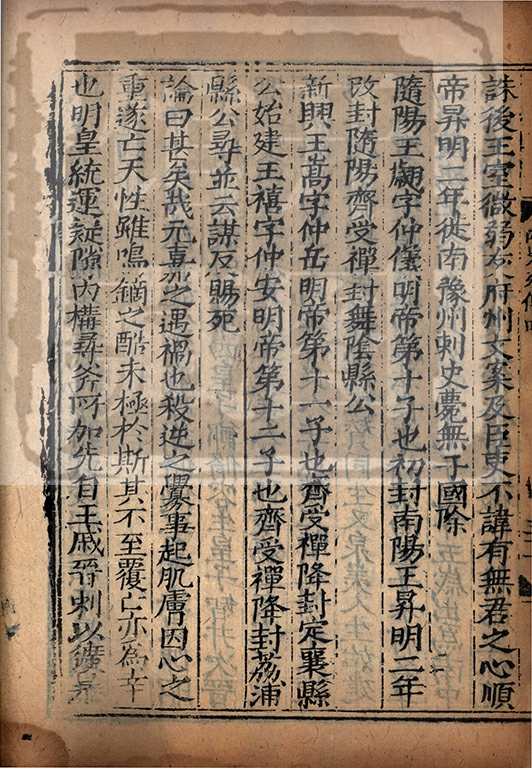 誅後王室微弱友府州文案及臣吏不諱有無君之心順
帝昇明二年徙南豫州刺史薨無子國除
隨陽王翽字仲儀明帝第十子也初封南陽王昇明二年
改封隨陽齊受禪封舞陰縣公
新興王嵩字仲岳明帝第十一子也齊受禪降封定襄縣
公始建王禧字仲安明帝第十二子也齊受禪降封荔浦
縣公尋並云謀反賜死
論曰甚矣哉元嘉之遇禍也殺逆之釁事起肌膚因心之
重遂亡天性雖鳴鏑之酷未極於斯其不至覆亡亦為幸
也明皇統運疑隙內構尋斧所加先自王戚晉刺以獷暴